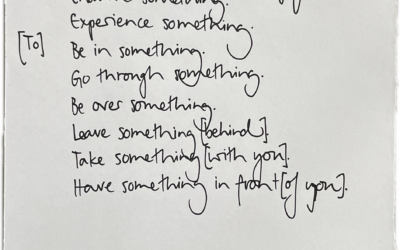 something.
Experience something.
[To] Be in something.
Go through something.
Be over something.
Leave something [behind].
Take something [with you].
Have something in front [of you].